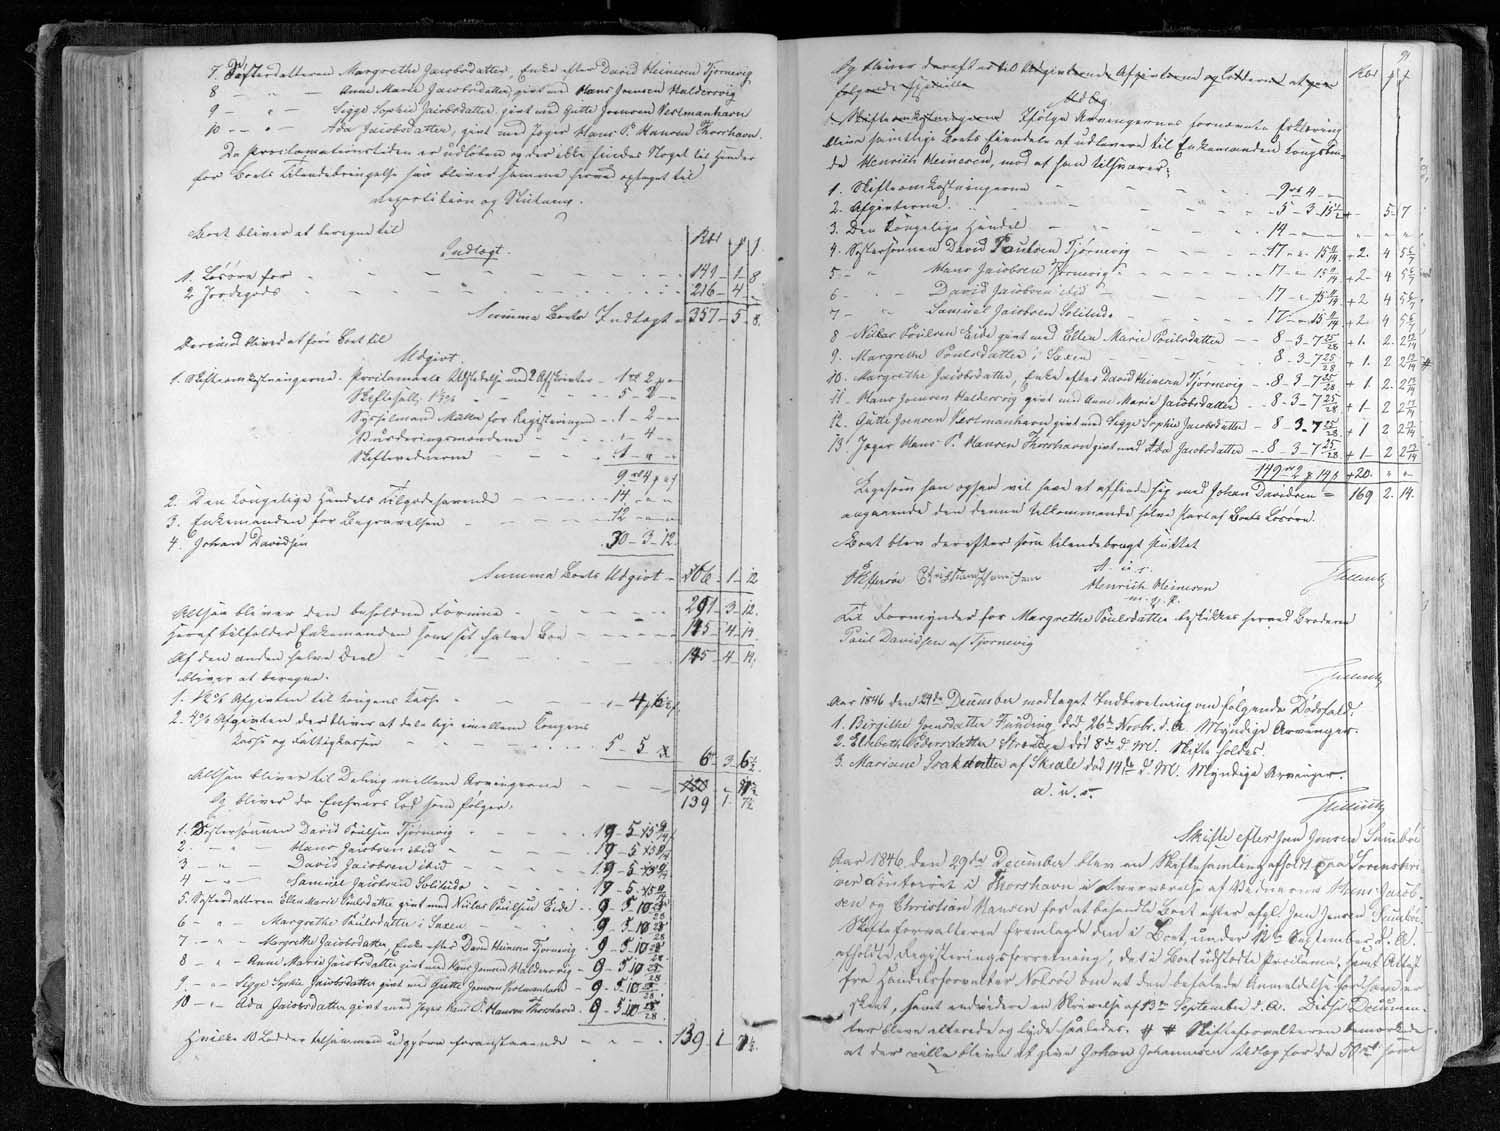 7. Søsterdatteren Margrethe Jacobsdatter, Enke efter David Heinesen Tjørnevig
8 — " — Anne Marie Jacobsdatter, givt med Hans Joensen Haldersvig
9 — " — Sigge Sophie Jacobsdatter, givt med Gutte Joensen Vestmanhavn
10 — " — Ada Jacobsdatter, givt med Jæger Hans P. Hansen Thorshavn.
Da Proclamationstiden er udløben og der ikke findes Noget til Hinder
for Boets Tilendebringelse saa bliver samme herved optaget til
Repartition og Slutning.
Boet bliver at beregne til
Indtægt. Rbd ß
1. Løsøre for — 141 — 1 — 8
2. Jordegods — 216 — 4 —
Summa Boets Indtægt — 357 — 5 — 8.
Derimod bliver at føre Boet til
Udgivt.
1. Skifteomkostningerne. Proclamaets Udstædelse med 2 Afskrivter — 1 rd 2
Skiftesalg 1½% — 5 — 2 —
Sysselmand Müller for Registeringen — 1 — 2 —
Vurderingsmændene — " — 4 —
Skiftevidnerne — 1 — " —
9 rd 4 ß
2. Den kongelige Handels Tilgodehavende — 14 — " —
3. Enkemanden for Begravelsen — 12 — " —
4. Johan Davidsen — 30 — 3 — 12
Summa Boets Udgivt — 66 — 1 — 12
Altsaa bliver den beholdne Formue — 291 — 3 — 12.
heraf tilfalder Enkemanden som sit halve Boe — 145 — 4 — 14.
Af den anden halve Deel — 145 — 4 — 14.
bliver at beregne.
1. ½% Afgivten til Kongens Kasse — " — 4 ß 6½
2. 4% Afgivten der bliver at dele lige imellem Kongens
Kasse og Fattigkassen — 5 — 5 — 6 — 3 — 6½
Altsaa bliver til Deling mellem Arvingerne — 139 1 7½
Og bliver da Enhvers Lod som følger.
1. Søstersønnen David Poulsen Tjørnevig — 19 — 5 — 15 9/14
2. — " — Hans Jacobsen ibid — 19 — 5 — 15 9/14
3 — " — David Jacobsen ibid — 19 — 5 — 15 9/14
4 — " — Samuel Jacobsen Solitude — 19 — 5 — 15 9/14
5. Søsterdatteren Ellen Marie Poulsdatter givt med Niclas Poulsen Eide — 9 — 5 — 10 23/28
6 — " — Margrethe Poulsdatter i Saxen — 9 — 5 — 10 23/28
7 — " — Margrethe Jacobsdatter, Enke efter David Heinesen Tjørnevig — 9 — 5 — 10 23/28
8 — " — Anne Marie Jacobsdatter givt med Hans Joensen Haldersvig — 9 — 5 — 10 23/28
9 — " — Sigge Sophie Jacobsdatter givt med Gutte Joensen Vestmanhavn — 9 — 5 — 10 23/28
10 — " — Ada Jacobsdatter givt med Jæger Hans P. Hansen Thorshavn — 9 — 5 — 10 23/28
Hvilke 10 Lodder tilsammen udgjøre foranstaaende — 139 — 1 — 7½.
91
Og bliver derefter at til udgivterne Afgivterne og Lodderne at
følgende specielle
Udlæg
Skifteomkostningerne Ifølge Arvingernes fornævnte Erklæring
blive samtlige Boets Eiendele at udlevere til Enkemanden Kongsbon-
de Henrich Heinesen, mod at han tilsvarer:
1. Skifteomkostningerne — 9 rd 4 —
2. Afgivterne — 5 — 3 — 15½ + — 5 — 7
3. Den kongelige Handel — 14 — " —
4. Søstersønnen David Poulsen Tjørnevig — 17 — " — 15 9/14 + 2. 4 5 6/7
5 — " — Hans Jacobsen Tjørnevig — 17 — " — 15 9/14 + 2 4 5 6/7
6 — " — David Jacobsen ibid — 17 — " — 15 9/14 + 2 4 5 6/7
7 — " — Samuel Jacobsen Solitude — 17 — " — 15 9/14 + 2. 4 5 6/7
8 Niclas Poulsen Eide givt med Ellen Marie Poulsdatter — 8 — 3 — 7 25/28 + 1. 2. 2 13/14
9. Margrethe Poulsdatter i Saxen — 8 — 3 — 7 25/28 + 1. 2 2 13/14
10. Margrethe Jacobsdatter, Enke efter David Heinesen Tjørnevig — 8 — 3 — 7 25/28 + 1 2 2 13/14
11. Hans Joensen Haldersvig givt med Anne Marie Jacobsdatter — 8 — 3 — 7 25/28 + 1 — 2 2 13/14
12. Gutte Joensen Vestmanhavn givt med Sigge Sophie Jacobsdatter — 8 — 3 — 7 25/28 + 1 2 2 13/14
13. Jæger Hans P. Hansen Thorshavn givt med Ada Jacobsdatter — 8 — 3 — 7 25/28 + 1 — 2 2 13/14
149 rd 2 ß 14 + 20. " "
Ligesom han ogsaa vil have at affinde sig med Johan Davidsen — 169 2. 14.
angaaende den denne tilkommende halve Part af Boets Løsøre.
Boet blev derefter som tilendebragt sluttet
A. u. s.
Henrich Heinesen
m. f. P.
Til Formynder for Margrethe Poulsdatter beskikkes herved Broderen
Paul Davidsen af Tjørnevig
Aar 1846 den 24de December modtaget Indberetning om følgende Dødsfald:
1. Birgithe Joensdatter Funding, død 26de Novbr. d. A. Myndige Arvinger.
2. Elsebeth Pedersdatter død 8de d. M. Skifte holdes.
3. Mariane Isaksdatter af Skaale død 14de d. M. Myndige Arvinger.
a. u. s.
Skifte efter Joen Jensen Sumbøe
Aar 1846 den 29de December blev en Skiftesamling afholdt paa Sorenskri-
ver Contoiret i Thorshavn i Overværelse af Vidnerne Hans Jacob-
sen og Christian Hansen for at behandle Boet efter afg. Joen Jensen Sumbøe.
Skifteforvalteren fremlagde den i Boet under 12te September d. A.
afholdte Registeringsforretning, det i Boet udstedte Proclama, samt Attest
fra Handelsforvalter Nolsøe om at den befalede Anmeldelse sammesteds er
skeet, samt endvidere en Skrivelse af 13de September d. A. Disse Documen-
ter bleve acterede og lyde saaledes. # # Skifteforvalteren bemærkede
at der vilde blive at give Johan Johannesen Udlæg for de 50 rd som